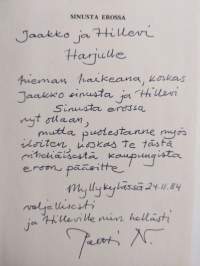 SINUSTA EROSSA
Jaakko ja Hillevi
Harjulle
hieman haikeana, koskas
Jaakko sinusta ja Hillevi
Sinusta erossa
nyt ollaan,
mutta puolestanne myös
iloiten, koskas te tästä
nihiliäisestä kaupungista
eroon pääsitte
Myllykylässä 24.11.84
veljellisesti
ja Hilleville niin hellästi
Jatti N.